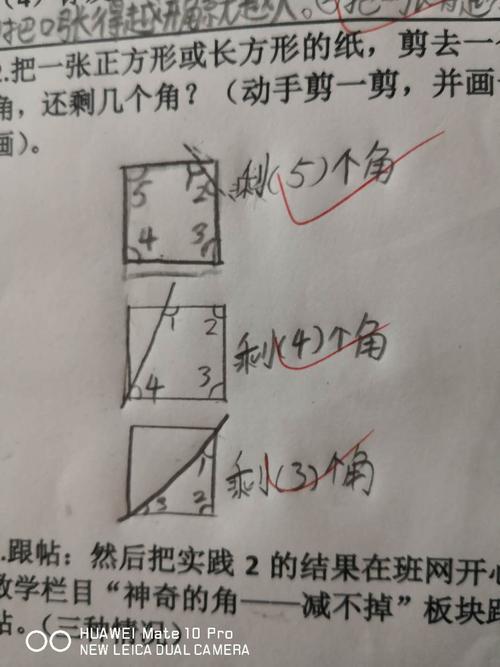 2.把一张正方形或长方形的纸，剪去一
角，还剩几个角？（动手剪一剪，并画
画）。
5 1 2 4 3 剩(5)个角
1 2 4 3 剩(4)个角
1 3 2 剩(3)个角
.跟帖：然后把实践 2 的结果在班网开心
数学栏目“神奇的角——减不掉”板块跟
帖。（三种情况）
HUAWEI Mate 10 Pro
NEW LEICA DUAL CAMERA